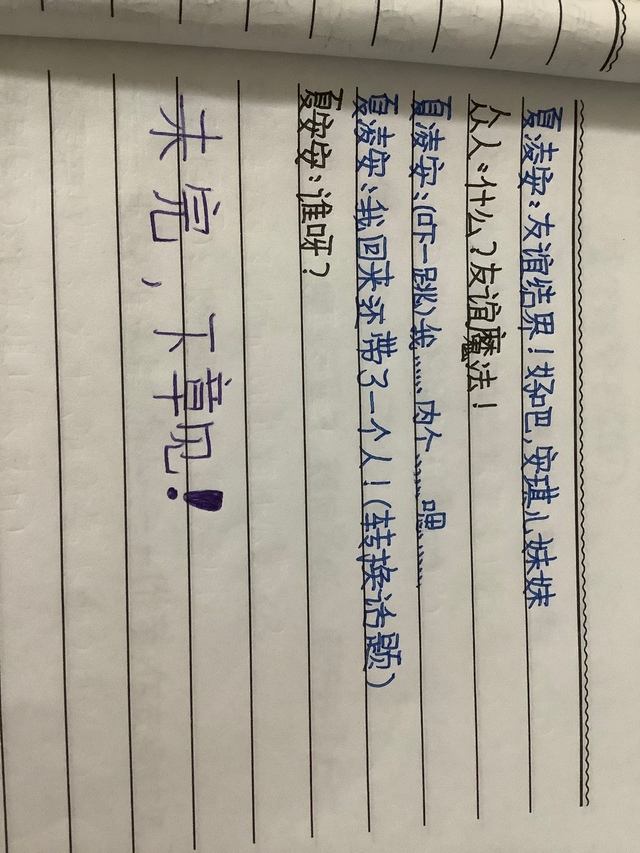 夏凌安：友谊结界！好吧，安琪儿妹妹
众人：什么？友谊魔法！
夏凌安：(吓一跳)我……内个……嘿……
夏凌安：我回来还带了一个人！(转换话题)
夏安安：谁呀？
未完，下章见！